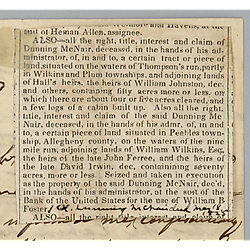 suit of Hesnan Allen, assignee.
ALSO—all the right, title, interest and claim of
Dunning McNair, deceased, in the hands of his ad-
ministrator, of, in and to, a certain tract or piece of
land situated on the waters of Thompson's run,partly
in Wilkins and Plum townships, and adjoining lands
of Hall's heirs, the heirs of William Johnston, dec.
and others, containing fifty acres more or less, on
which there are about four or five acres cleared, and
a few logs of a cabin built up. Also all the right,
title, interest and claim of the said Dunning Mc
Nair, deceased, in the hands of his admr. of, in and
to, a certain piece of land situated in Peebles town-
ship, Allegheny county, on the waters of the nine
mile run, adjoining lands of William Wilkins, Esq.
the heirs of the late John Ferree, and the heirs of
the late David Irwin, dec. containing seventy
acres, more or less. Seized and taken in execution
as the property of the said Dunning McNair, dec'd,
in the hands of his administrator, at the suit of the
Bank of the United States for the use of William B
Foster
ALSO—all the right